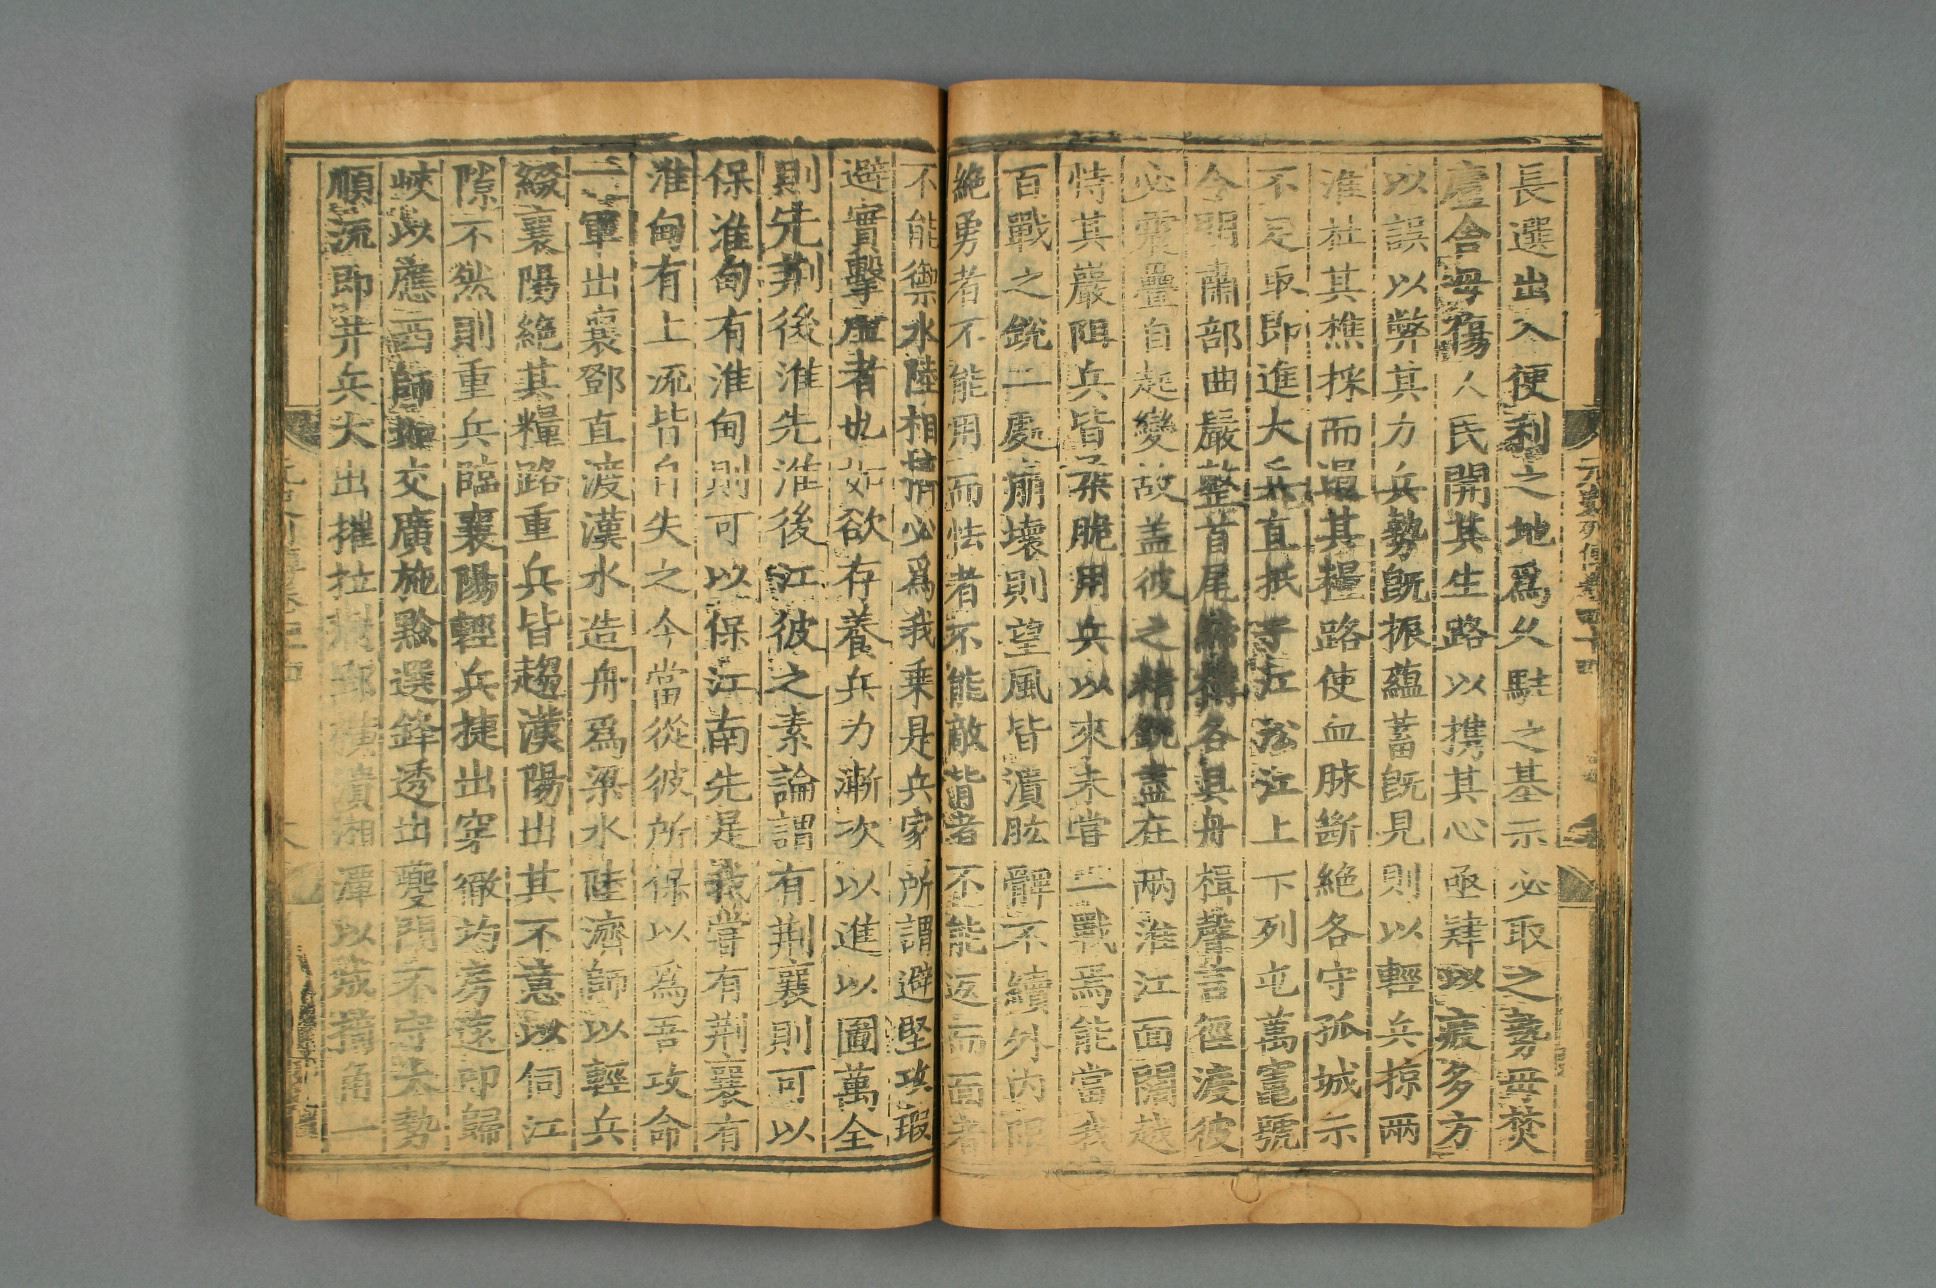 長選出入便利之地爲久駐之基示必取之勢毋焚
廬舍毋傷人民開其生路以携其心亟肄以疲多方
以誤以弊其力兵勢旣振蘊蓄旣見則以輕兵掠兩
淮杜其樵採而遏其糧路使血脉斷絶各守孤城示
不足取即進大兵直抵于江沿江上下列屯萬竈號
令明肅部曲嚴整首尾締構各具舟楫聲言徑渡彼
必震疊自起變故盖彼之精銳盡在兩淮江面闊越
恃其巖阻兵皆柔脆用兵以來未嘗一戰焉能當我
百戰之銳一處崩壞則望風皆潰肱髀不續外內限
絶勇者不能用而怯者不能敵背者不能返而面者
不能禦水陸相擠必爲我乗是兵家所謂避堅攻瑕
避實擊虛者也如欲存養兵力漸次以進以圖萬全
則先荆後淮先淮後江彼之素論謂有荆襄則可以
保淮甸有淮甸則可以保江南先是我嘗有荆襄有
淮甸有上流皆自失之今當從彼所保以爲吾攻命
一軍出襄鄧直渡漢水造舟爲梁水陸濟師以輕兵
綴襄陽絶其糧路重兵皆趨漢陽出其不意以伺江
隙不然則重兵臨襄陽輕兵捷出穿徹均房遠即歸
峽以應西師如交廣施黔選鋒透出夔門不守大勢
順流即并兵大出摧拉荆郢橫潰湘潭以成掎角一
元史列傳卷四十四